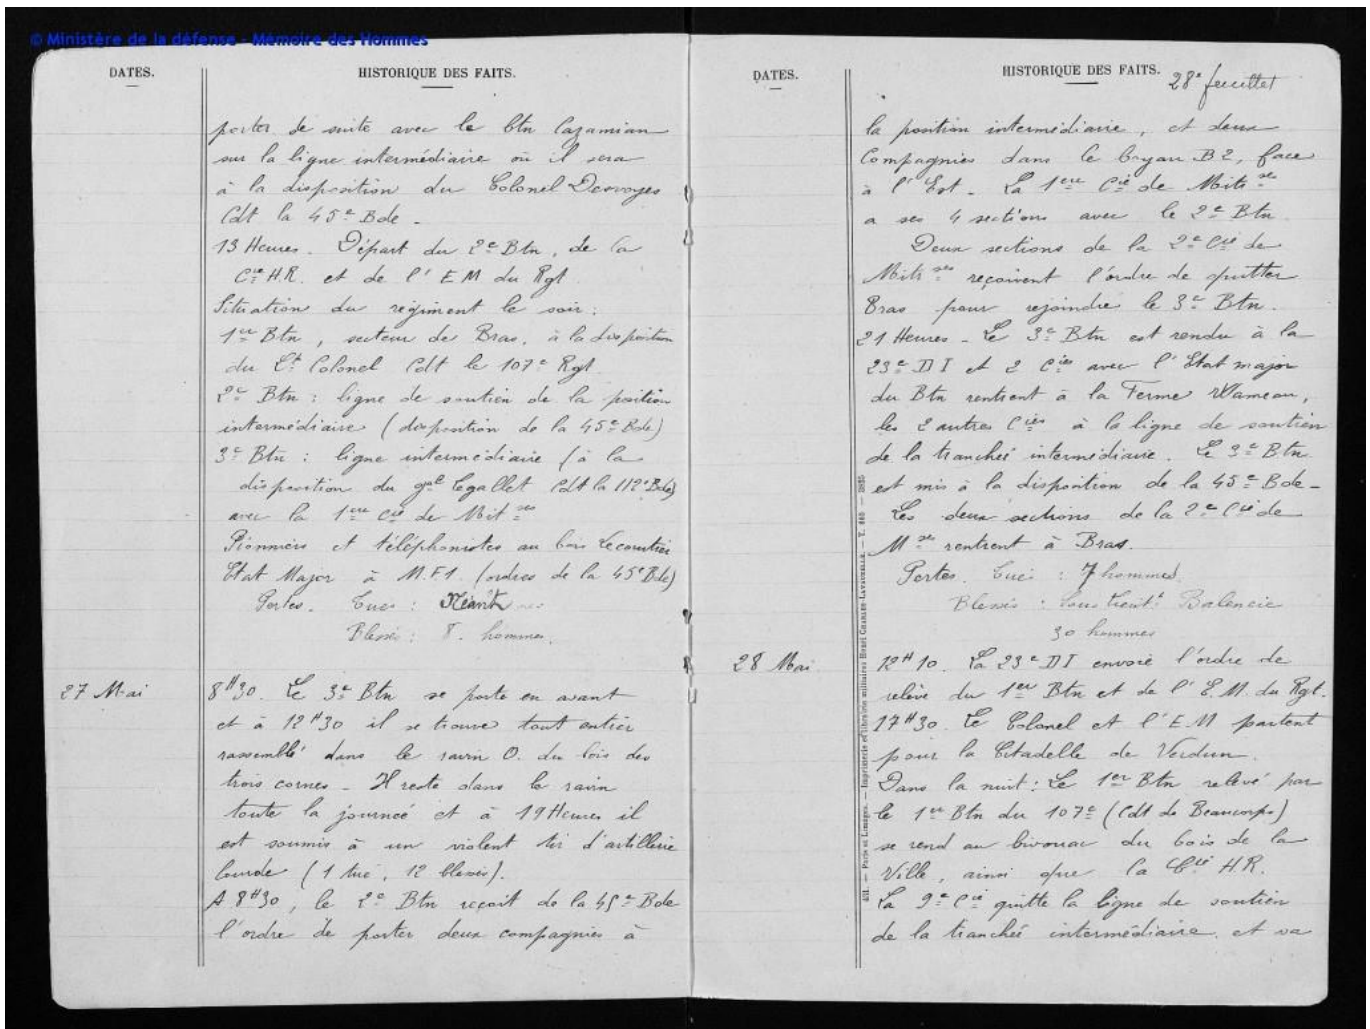 © Ministère de la défense - Mémoire des Hommes
DATES.
HISTORIQUE DES FAITS.
porter de suite avec le btn Cazamian
sur la ligne intermédiaire où il sera
à la disposition du Colonel Desvoyes
Cdt la 45e Bde -
13 Heures. Départ du 2e Btn, de la
Cie H.R. et de l'EM du Rgt
Situation du régiment le soir :
1er Btn, secteur de Bras, à la disposition
du Lt Colonel Cdt le 107e Rgt
2e Btn : ligne de soutien de la position
intermédiaire (disposition de la 45e Bde)
3e Btn : ligne intermédiaire (à la
disposition du gal Legallet Cdt la 112e Bde)
avec la 1ere Cie de Mitses
Pionniers et téléphonistes au bois Lecourtier
Etat Major à M.F.1. (ordres de la 45e Bde)
Pertes. Tués : Néant
Blessés : 8. hommes.
27 Mai
8H30. Le 3e Btn se porte en avant
et à 12H30 il se trouve tout entier
rassemblé dans le ravin O. du bois des
trois cornes - Il reste dans le ravin
toute la journée et à 19 Heures il
est soumis à un violent tir d'artillerie
lourde (1 tué, 12 blessés).
A 8H30, le 2e Btn reçoit de la 45e Bde
l'ordre de porter deux compagnies à
DATES.
HISTORIQUE DES FAITS.
28e feuillet
la position intermédiaire, et deux
Compagnies dans le boyau B2, face
à l'Est - La 1ere Cie de Mitses
a ses 4 sections avec le 2e Btn
Deux sections de la 2e Cie de
Mitses reçoivent l'ordre de quitter
Bras pour rejoindre le 3e Btn.
21 Heures - Le 3e Btn est rendu à la
23e DI et 2 Cies avec l'Etat major
du Btn rentrent à la Ferme Wameau,
les 2 autres Cies à la ligne de soutien
de la tranchée intermédiaire. Le 3e Btn
est mis à la disposition de la 45e Bde -
Les deux sections de la 2e Cie de
Mses rentrent à Bras.
Pertes. Tués : 7 hommes.
Blessés : Sous lieutt Balencie
30 hommes
28 Mai
12H10. La 23e DI envoie l'ordre de
relève du 1er Btn et de l'E.M. du Rgt.
17H30. Le Colonel et l'EM partent
pour la Citadelle de Verdun.
Dans la nuit : Le 1er Btn relevé par
le 1er Btn du 107e (Cdt de Beaucorps)
se rend au bivouac du bois de la
Ville, ainsi que la Cie H.R.
La 9e Cie quitte la ligne de soutien
de la tranchée intermédiaire et va
Paris et Limoges. — Imprimerie et librairie militaires Henri CHARLES-LAVAUZELLE.